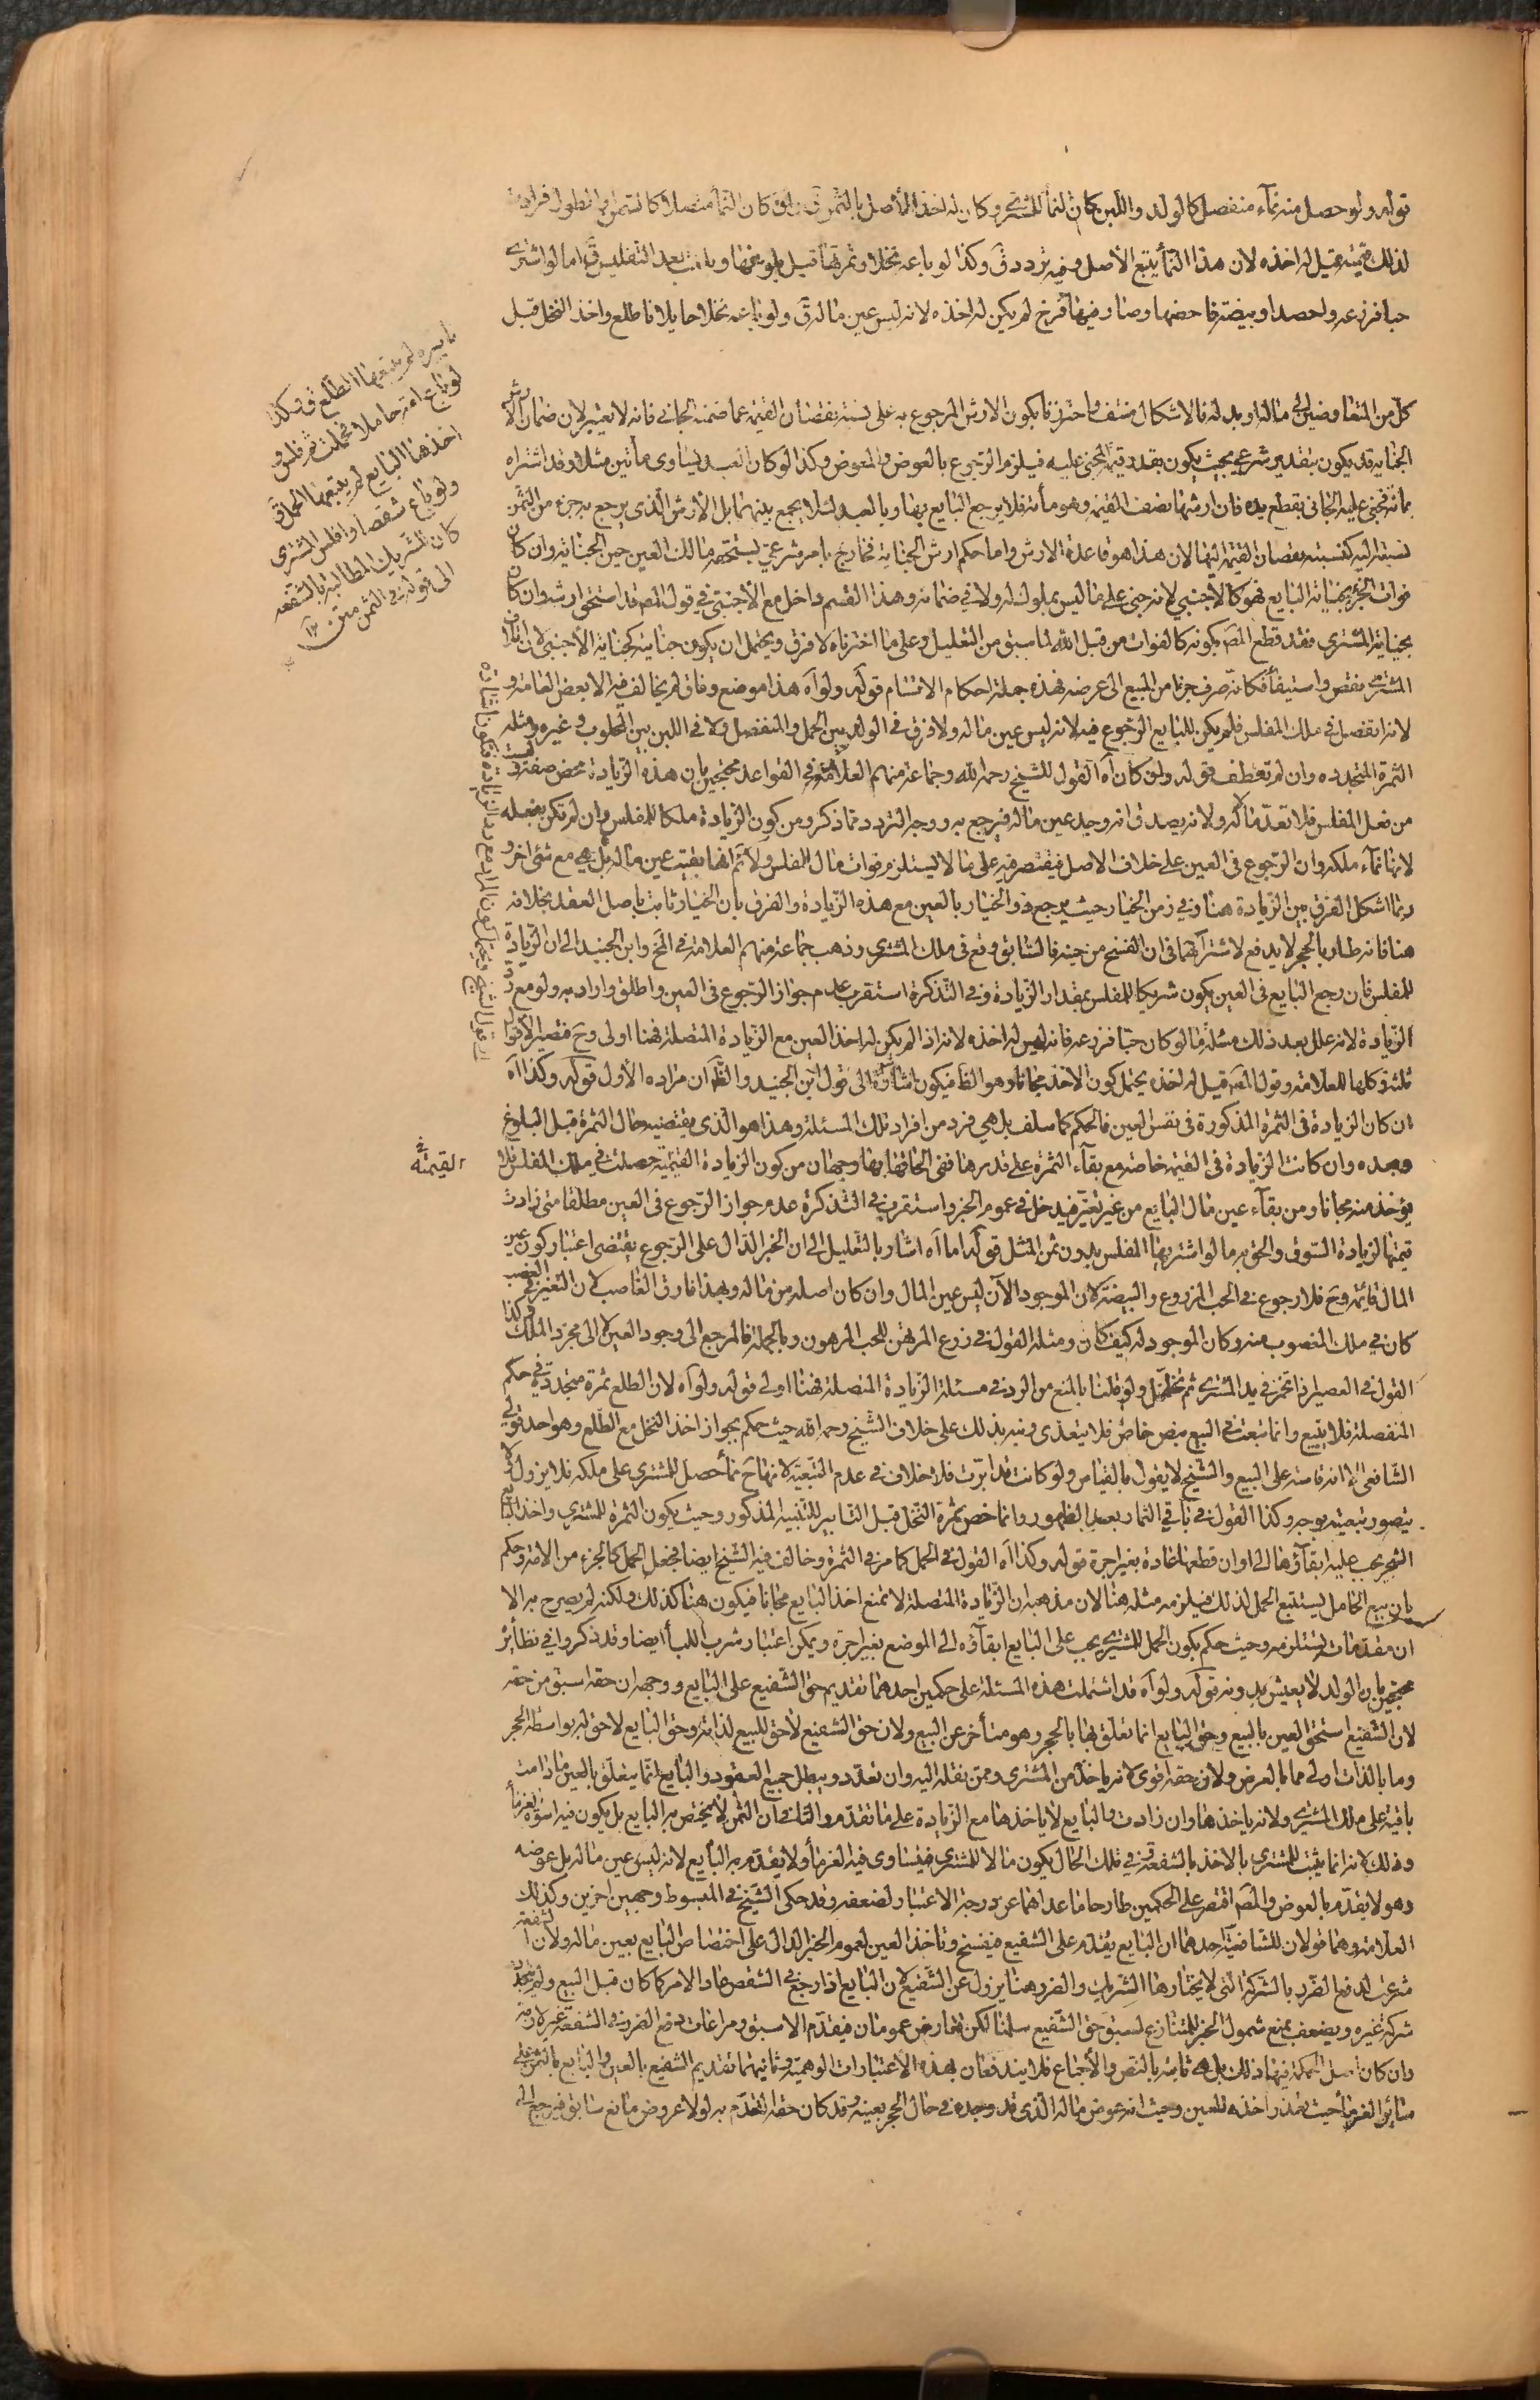 قوله ولو حصل منه نمآء منفصل كالولد واللبن كان النمآ للمشتري وكان له اخذ الأصل بالثمن ولو كان النمآ متصلا كالسمن او الطول فزادت
لذلك قيمته قيل له اخذه لان هذا النمآ يتبع الأصل وفيه تردد وكذا لو باعه نخلا وثمرتها قبل بلوغها وبلغت بعد التفليس اما لو اشترى
حبا فزرعه واحصد او بيضة فاحضنها وصار فيها فرخ لم يكن له اخذه لانه ليس عين ماله ولو باعه نخلا حايلا فاطلع واخذ النخل قبل
تأبيره لم يتبعها الطلع وكذا
لو باع امة حاملا فحملت ثم فلس و
اخذها البايع لم يتبعها الحمل
ولو باع شقصا وافلس المشتري
كان للشريك المطالبة بالشفعة
الى قوله في الثمن متن
كل من المتعاوضين الى ماله او بدله فالاشكال منتف واحترزنا بكون الارش المرجوع به على نسبة نقصان القيمة عما ضمنه الجاني فانه لا يعتبر لان ضمان الارش
الجناية قد يكون بتقدير شرعي بحيث يكون بقدر قيمة المجني عليه فيلزم الرجوع بالعوض والمعوض وكذا لو كان العبد يساوي مأتين مثلا وقد اشتراه
بمأة فجنى عليه الجاني بقطع يده فان ارشها نصف القيمة وهو مأة فلا يرجع البايع بها وبالعبد لئلا يجمع بينهما بل الارش الذي يرجع به جزء من الثمن
نسبته اليه كنسبة نقصان القيمة اليها لان هذا هو قاعدة الارش واما حكم ارش الجناية فخارج بامر شرعي يستحقه مالك العين حين الجناية وان كان
فوات الجزء بجناية البايع فهو كالأجنبي لانه جنى على ما ليس بملوك له ولا في ضمانه وهذا القسم داخل مع الأجنبي في قول المص قد استحق ارشه وان كان
بجناية المشتري فقد قطع المص بكونه كالفوات من قبل الله لما سبق من التعليل وعلى ما اخترناه لا فرق ويحتمل ان يكون جنايته كجناية الأجنبي لان اتلاف
المشتري نقص واستيفآء فكانه صرف جزءا من المبيع الى غرضه فهذه جملة احكام الاقسام قوله ولو اه هذا موضع وفاق لم يخالف فيه الا بعض العامة و
لانه انفصل في ملك المفلس فلم يكن للبايع الرجوع فيه لانه ليس عين ماله ولا فرق في الولد بين الحمل والمنفصل ولا في اللبن بين المحلوب وغيره ومثله
الثمرة المتجددة وان لم تقطف قوله ولو كان اه القول للشيخ رحمه الله وجماعة منهم العلامة في القواعد محتجين بان هذه الزيادة محض صفة وليست
من فعل المفلس فلا تعد مالا له ولانه يصدق انه وجد عين ماله فيرجع به ووجه التردد مما ذكر ومن كون الزيادة ملكا للمفلس وان لم تكن بفعله
لانها نمآء ملكه وان الرجوع في العين على خلاف الاصل فيقتصر فيه على ما لا يستلزم فوات مال المفلس ولا ثم انها بقيت عين ماله بل هي مع شئ اخر و
ربما اشكل الفرق بين الزيادة هنا وفي زمن الخيار حيث يرجع ذو الخيار بالعين مع هذه الزيادة والفرق بان الخيار ثابت باصل العقد بخلافه
هنا فانه طار بالحجر لا يدفع لاشتراكهما في ان الفسخ من حينه فالسابق وقع في ملك المشتري وذهب جماعة منهم العلامة في المخ وابن الجنيد الى ان الزيادة
للمفلس فان رجع البايع في العين يكون شريكا للمفلس بمقدار الزيادة وفي التذكرة استقرب عدم جواز الرجوع في العين واطلق واراد به ولو مع رد
الزيادة لانه علل بعد ذلك مسئلة ما لو كان حبا فزرعه فانه ليس له اخذه لانه اذا لم يكن له اخذ العين مع الزيادة المتصلة فهنا اولى وح فتصير الأقوال
ثلثة وكلها للعلامة وقول المص قيل له اخذه يحتمل كون الأخذ مجانا وهو الظ فيكون اشارة الى قول ابن الجنيد والظ ان مراده الأول قوله وكذا اه
ان كان الزيادة في الثمرة المذكورة في نفس العين فالحكم كما سلف بل هي فرد من افراد تلك المسئلة وهذا هو الذي يقتضيه حال الثمرة قبل البلوغ
وبعده وان كانت الزيادة في القيمة خاصة مع بقآء الثمرة على قدرها ففي الحاقها بها وجهان من كون الزيادة القيمية حصلت في ملك المفلس فلا
القيمة في
يؤخذ منه مجانا ومن بقآء عين مال البايع من غير تغير فيدخل في عموم الخبر واستقرب في التذكرة عدم جواز الرجوع في العين مطلقا متى زادت
قيمتها لزيادة السوق والحق به ما لو اشتريها المفلس بدون ثمن المثل قوله اما اه اشار بالتعليل الى ان الخبر الدال على الرجوع يقتضي اعتبار كون عين
المال قائمة وح فلا رجوع في الحب المزروع والبيضة لان الموجود الآن ليس عين المال وان كان اصله من ماله وبهذا فارق الغاصب لان التغير في الغصب
كان في ملك المغصوب منه وكان الموجود له كيف كان ومثله القول في زرع المرتهن للحب المرهون وبالجملة فالمرجع الى وجود العين لا الى مجرد الملك وكذا
القول في العصير اذا تخمر في يد المشتري ثم تخلل ولو قلنا بالمنع من الرد في مسئلة الزيادة المتصلة فهنا اولى قوله ولو اه لان الطلع ثمرة متجددة في حكم
المنفصلة فلا يتبع وانما تبعت في البيع بنص خاص فلا يتعدى ونبه بذلك على خلاف الشيخ رحمه الله حيث حكم بجواز اخذ النخل مع الطلع وهو احد قولي
الشافعي الا انه قاسه على البيع والشيخ لا يقول بالقياس ولو كانت قد ابرت فلا خلاف في عدم التبعية لانها ح نمآ حصل للمشتري على ملكه فلا يزول ولا
يتصور تبعيته بوجه وكذا القول في باقي الثمار بعد الظهور وانما خص ثمرة النخل قبل التأبير للتنبيه المذكور وحيث يكون الثمرة للمشتري واخذ البايع
الشجر يجب عليه ابقآؤها الى اوان قطعها عادة بغير اجرة قوله وكذا اه القول في الحمل كما مر في الثمرة وخالف فيه الشيخ ايضا فجعل الحمل كالجزء من الامة وحكم
بان بيع الحامل يستتبع الحمل لذلك فيلزمه مثله هنا لان مذهبه ان الزيادة المتصلة لا تمنع اخذ البايع مجانا فيكون هنا كذلك ولكنه لم يصرح به الا
ان مقدمات تستلزمه وحيث حكم بكون الحمل للمشتري يجب على البايع ابقآؤه الى الوضع بغير اجرة ويمكن اعتبار شرب اللبأ ايضا وقد ذكروا في نظائره
محتجين بان الولد لا يعيش بدونه قوله ولو اه قد اشتملت هذه المسئلة على حكمين احدهما تقديم حق الشفيع على البايع ووجهه ان حقه اسبق من حقه
لان الشفيع استحق العين بالبيع وحق البايع انما تعلق بها بالحجر وهو متأخر عن البيع ولان حق الشفيع لاحق للبيع لذاته وحق البايع لاحق له بواسطة الحجر
وما بالذات اولى مما بالعرض ولان حقه اقوى لانه يأخذ من المشتري وممن نقله اليه وان تعدد ويبطل جميع العقود والبايع انما يتعلق بالعين ما دامت
باقية على ملك المشتري ولانه يأخذها وان زادت والبايع لا يأخذها مع الزيادة على ما تقدم والثاني ان الثمن لا يختص به البايع بل يكون فيه اسوة الغرمآ
وذلك لانه انما يثبت للمشتري بالاخذ بالشفعة وفي تلك الحال يكون مالا للمشتري فيتساوى فيه الغرمآ ولا يتقدم به البايع لانه ليس عين ماله بل عوضه
وهو لا يقدم بالعوض والمص اقتصر على الحكمين طارحا ما عداهما عن درجة الاعتبار لضعفه وقد حكى الشيخ في المبسوط وجهين اخرين وكذلك
العلامة وهما قولان للشافعية احدهما ان البايع يقدم على الشفيع فيفسخ ويأخذ العين لعموم الخبر الدال على اختصاص البايع بعين ماله ولان الشفعة
شرعت لدفع الضرر بالشركة التي لا يختارها الشريك والضرر هنا يزول عن الشفيع لان البايع اذا رجع في الشقص عاد الامر كما كان قبل البيع ولم يتجدد
شركة غيره ويضعف بمنع شمول الخبر للمتنازع لسبق حق الشفيع سلمنا لكن تعارض عمومان فيقدم الاسبق ومراعات دفع الضرر في الشفعة غير لازمة
وان كان اصل الحكمة فيها ذلك بل هي ثابتة بالنص والأجماع فلا يندفعان بهذه الاعتبارات الوهمية وثانيهما تقديم الشفيع بالعين والبايع بالثمن على
سائر الغرمآ حيث تعذر اخذه للعين وحيث انه عوض ماله الذي قد وجده في حال الحجر بعينه وقد كان حقه التقدم به لولا عروض مانع سابق فيرجع الى